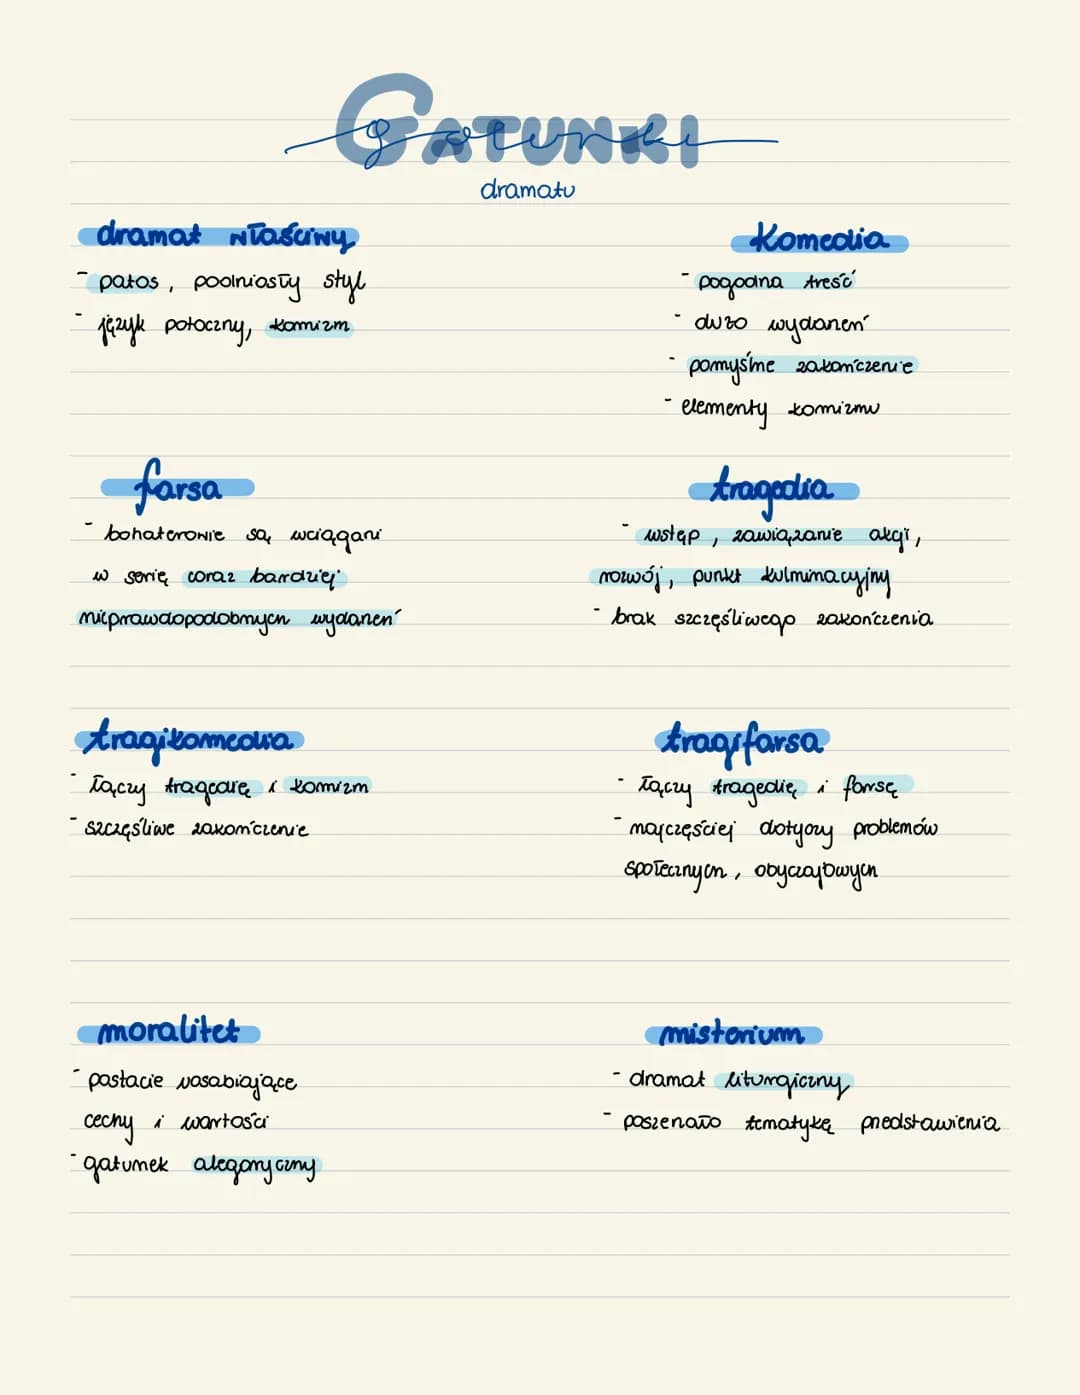 GATUNKI
gatunki
dramatu
dramat właściwy
- patos, podniosły styl
- język potoczny, komizm
Komedia
- pogodna treść
- dużo wydarzeń
- pomyślne zakończenie
- elementy komizmu
farsa
- bohaterowie są wciągani
w serię coraz bardziej
nieprawdopodobnych wydarzeń
tragedia
- wstęp, zawiązanie akcji,
rozwój, punkt kulminacyjny
- brak szczęśliwego zakończenia
tragikomedia
- łączy tragedię i komizm
- szczęśliwe zakończenie
tragifarsa
- łączy tragedię i farsę
- najczęściej dotyczy problemów
społecznych, obyczajowych
moralitet
- postacie uosabiające
cechy i wartości
- gatunek alegoryczny
misterium
- dramat liturgiczny
- poszerzało tematykę przedstawienia